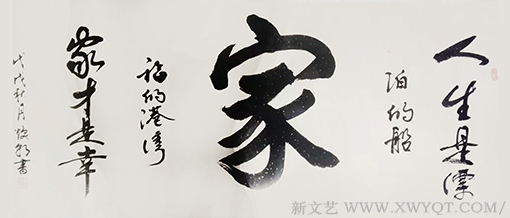 人生是漂
泊的船
家
家才是幸
福的港湾
戊戌秋月书
新文艺 / WWW.XWYQT.COM/